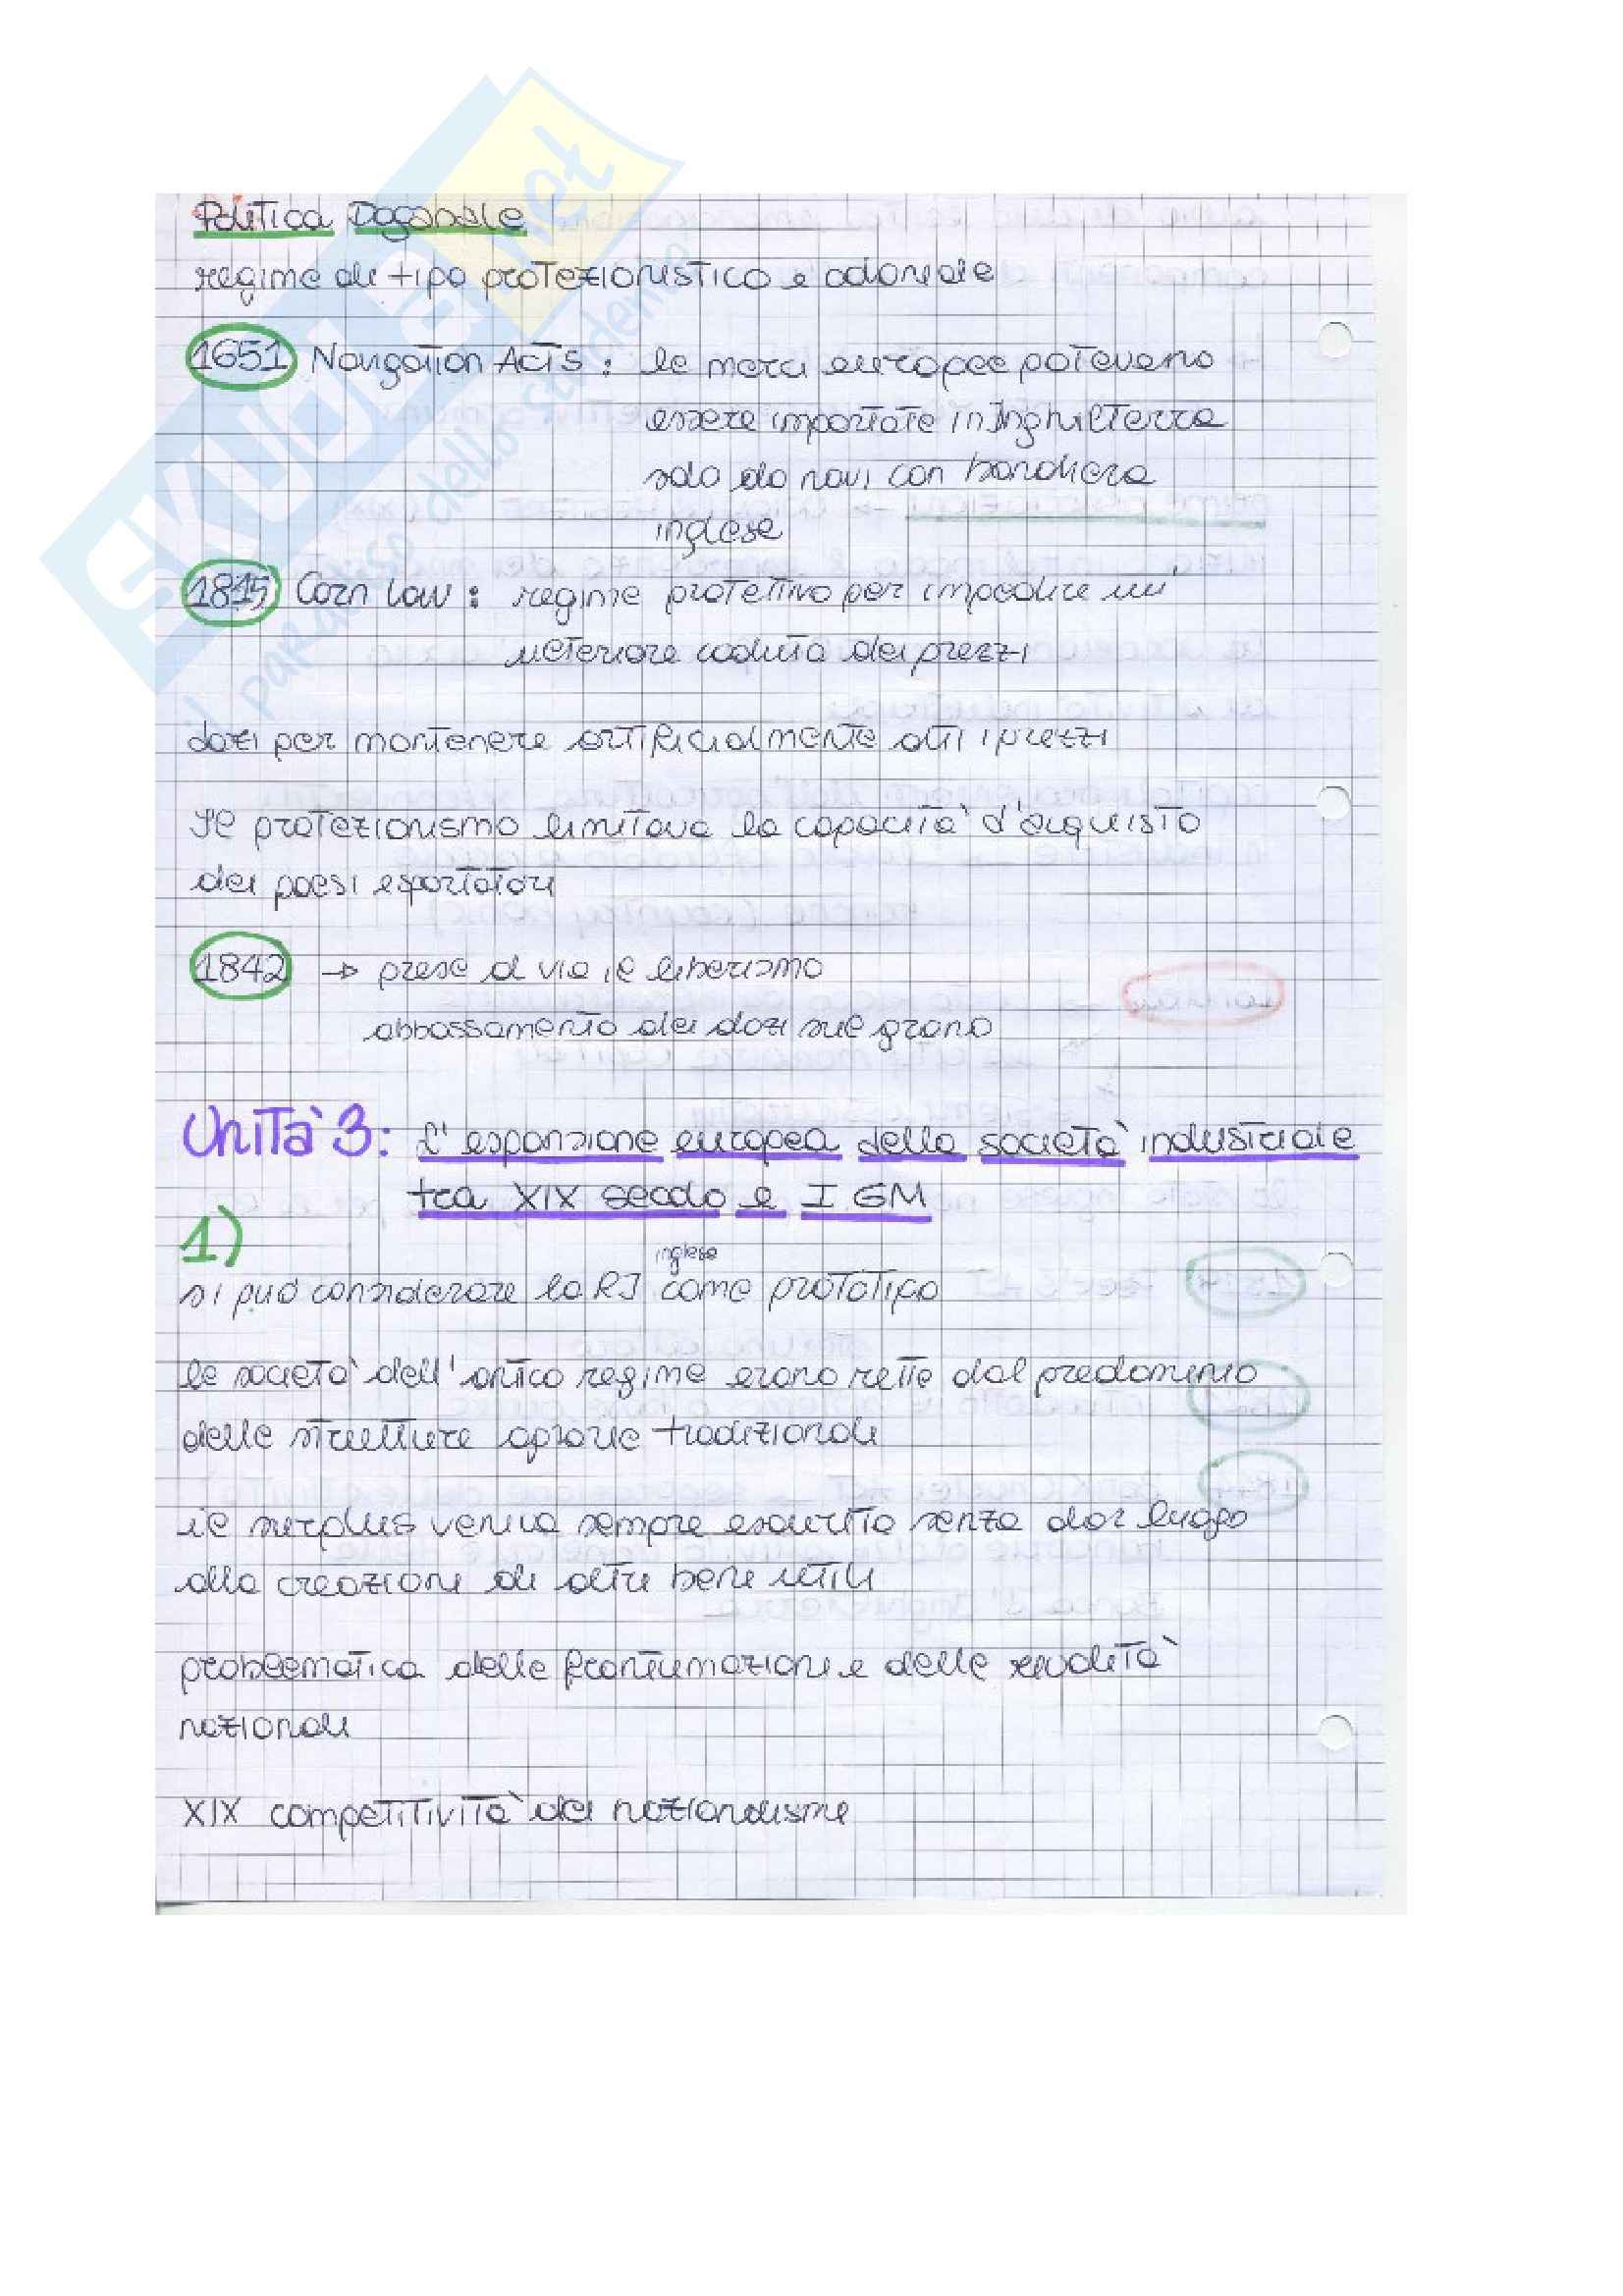 Politica Doganale
regime di tipo protezionistico e coloniale
1651 Navigation Acts: le merci europee potevano
essere importate in Inghilterra
solo da navi con bandiera
inglese
1815 Corn Law: regime protettivo per impedire un'
ulteriore caduta dei prezzi
dazi per mantenere artificialmente alti i prezzi
Il protezionismo limitava la capacità d'acquisto
dei paesi esportatori
1842 → prese il via il liberismo
abbassamento dei dazi sul grano
Unità 3: L'espansione europea della società industriale
tra XIX secolo e I GM
1)
inglese
si può considerare la RI come prototipo
le società dell'antico regime erano rette dal predominio
delle strutture agrarie tradizionali
il surplus veniva sempre esaurito senza dar luogo
alla creazioni di altri beni utili
problematica delle frantumazioni e delle rivalità
nazionali
XIX competitività dei nazionalismi
SKUOLA.net
il paradiso dello studente